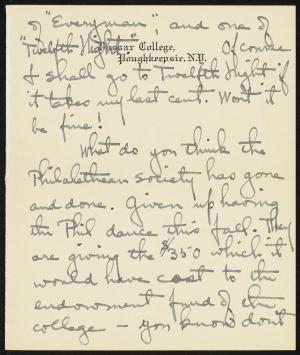 of "Everyman", and one of
"Twelfth Night". Of course
Vassar College,
Poughkeepsie, N.Y.
I shall go to Twelfth Night if
it takes my last cent. Won't it
be fine!
What do you think the
Philalethean society has gone
and done. Given up having
the Phil dance this fall. They
are giving the $350 which it
would have cost to the
endowment fund of the
college – you know don't